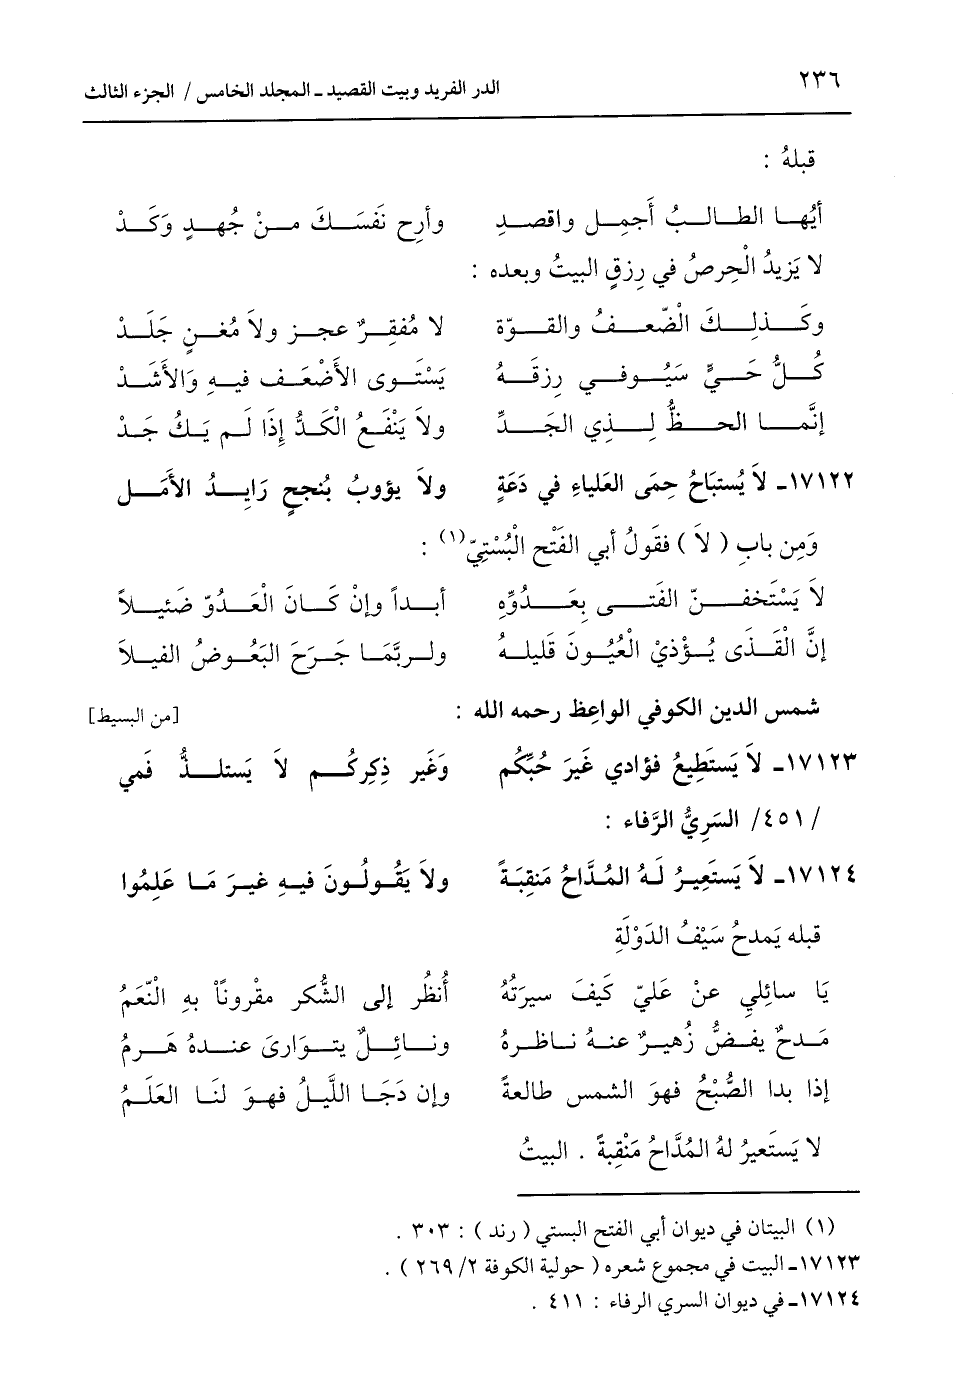 ٢٣٦ الدر الفريد وبيت القصيد ـ المجلد الخامس / الجزء الثالث
قبلهُ :
أيُها الطالبُ أَجمِل واقصدِ وأرِح نَفسَكَ مِنْ جُهدٍ وَكَدْ
لا يَزيدُ الْحِرصُ في رِزقٍ البيتُ وبعده :
وكَذلِكَ الضّعفُ والقوّة لا مُفقِرٌ عجز ولاَ مُغنٍ جَلَدْ
كُلُّ حَيٍّ سَيُوفي رزقهُ يَسْتَوى الأَضْعَف فيهِ وَالأَشَدْ
إنَّما الحظُّ لِذي الجَدِّ ولاَ يَنْفَعُ الْكَدُّ إذَا لَم يَكُ جَدْ
١٧١٢٢ـ لاَ يُستبَاحُ حِمَى العَلياءِ في دَعَةٍ ولاَ يؤوبُ بُنجحٍ رَايِدُ الأمَلِ
وَمِن بابِ ( لاَ ) فقَولُ أبي الفَتْحِ الْبُسْتِيّ(١) :
لاَ يَسْتَخفنّ الفَتى بِعَدُوِّه أبداً وإنْ كَانَ الْعَدُوّ ضَئِيلاً
إنَّ الْقَذَى يُؤْذيْ الْعُيُونَ قَليلهُ ولربَّمَا جَرَحَ البَعُوضُ الفيلاَ
شمس الدين الكوفي الواعِظ رحمه الله : [من البسيط]
١٧١٢٣ـ لاَ يَستَطِيعُ فؤادي غَيرَ حُبِّكم وَغَير ذِكرِكُم لاَ يَستلذُّ فَمي
/٤٥١/ السَرِيُّ الرَّفاء :
١٧١٢٤ـ لاَ يَستَعِيرُ لَهُ المُدَّاحُ مَنقِبَةً ولاَ يَقُولُونَ فيهِ غيرَ مَا عَلِمُوا
قبله يَمدحُ سَيْفُ الدَوْلَةِ
يَا سائِلي عنْ عَليّ كَيفَ سيرَتُهُ أُنظُر إلى الشُّكر مقْروناً بهِ الْنّعَمُ
مَدحٌ يغضُّ زُهيرٌ عنهُ ناظرهُ ونائِلٌ يتوارىَ عندهُ هَرمُ
إذا بدا الصُّبْحُ فهوَ الشمس طالعةً وإن دَجَا اللَّيلُ فهوَ لنَا العَلَمُ
لا يَستَعيرُ لهُ المُدَّاحُ مَنْقِبةً . البيتُ
(١) البيتان في ديوان أبي الفتح البستي ( رند ) : ٣٠٣ .
١٧١٢٣ـ البيت في مجموع شعره ( حولية الكوفة ٢/ ٢٦٩ ) .
١٧١٢٤ـ في ديوان السري الرفاء : ٤١١ .